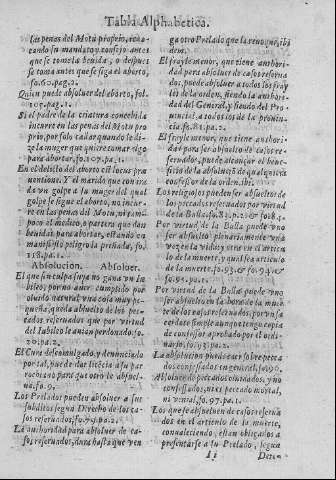 Tabla Alphabetica.
las penas del Motu proprio, toma
cando su mandato y consejo antes
que se tome la beuida, o despues
se toma antes que se siga el aborto,
fo.60.pag.2.
Quien puede absoluer del aborto, fol.
107.pag.1.
Si el padre de la criatura concebida
incurre en las penas del Motu pro
prio, por solo callar quando le di-
ze la muger que quiere tomar algo
para abortar, fo.107.pa.1.
En el delicto del aborto cii locus præ
uentione. Y el marido que con yra
da vn golpe a la muger del qual
golpe se sigue el aborto, no incur-
re en las penas del Motu, ni tam-
poco el medico, o partera que dan
beuidas para abortar, estando en
manifiesto peligro la preñada, fo.
118.pa.1.
Absolucion. Absoluer.
El que sin culpa suya no gana vn Iu
bileo, por no auer cumplido por
oluido natural vna cosa muy pe-
queña, queda absuelto de los pe-
cados reseruados que por virtud
del Iubileo le auian perdonado, fo.
20.pa.2.
El Cura descomulgado, y denunciado
por tal, puede dar licencia a su par
rochiano para que otro le absuel-
ua, fo.9.
Los Prelados pueden absoluer a sus
subditos segun Derecho de los ca-
sos reseruados, fo.79.pa.2.
La authoridad para absoluer de ca-
sos reseruados, dura hasta que ven
ga otro Prelado que la renoque, ibi
dem.
El frayle menor, que tiene authori-
dad para absoluer de casos reserua
dos, puede absoluer a todos los fray
les de la orden, siendo la authori-
dad del General, y siendo del Pro
uincial, a todos los de la prouin-
cia, fo.81.pa.2.
El frayle menor, que tiene authori-
dad para ser absuelto de casos re-
seruados, puede alcançar el bene-
ficio de la absolucion de qualquier
confessor de la orden, ibi.
Los religiosos pueden ser absueltos de
los pecados reseruados por virtud
de la Bulla, fo.83.p.2.
Por virtud de la Bulla puede vno
ser absuelto plenariamente vna
vez en la vida, y otra en el articu
lo de la muerte, y qual sea articulo
de la muerte, fo.93. & fo.94.
pa.1.
Por virtud de la Bulla puede vno
ser absuelto en la hora de la muer-
te de los casos reseruados, por vn sa
cerdote simple aunque tenga copia
de confessor aprobado por el ordi-
nario, fo.93.pa.2.
La absolucion puede caer sobre pecca
dos confessados en general, fo.90.
Absoluer de peccados contados, y no
confessados, ni es peccado mortal,
ni venial, fo.97.pa.1.
Los que se absueluen de casos reserua
dos en el articulo de la muerte,
conualeciendo, estan obligados a
presentarse a su Prelado, segun
Ii
Deren-